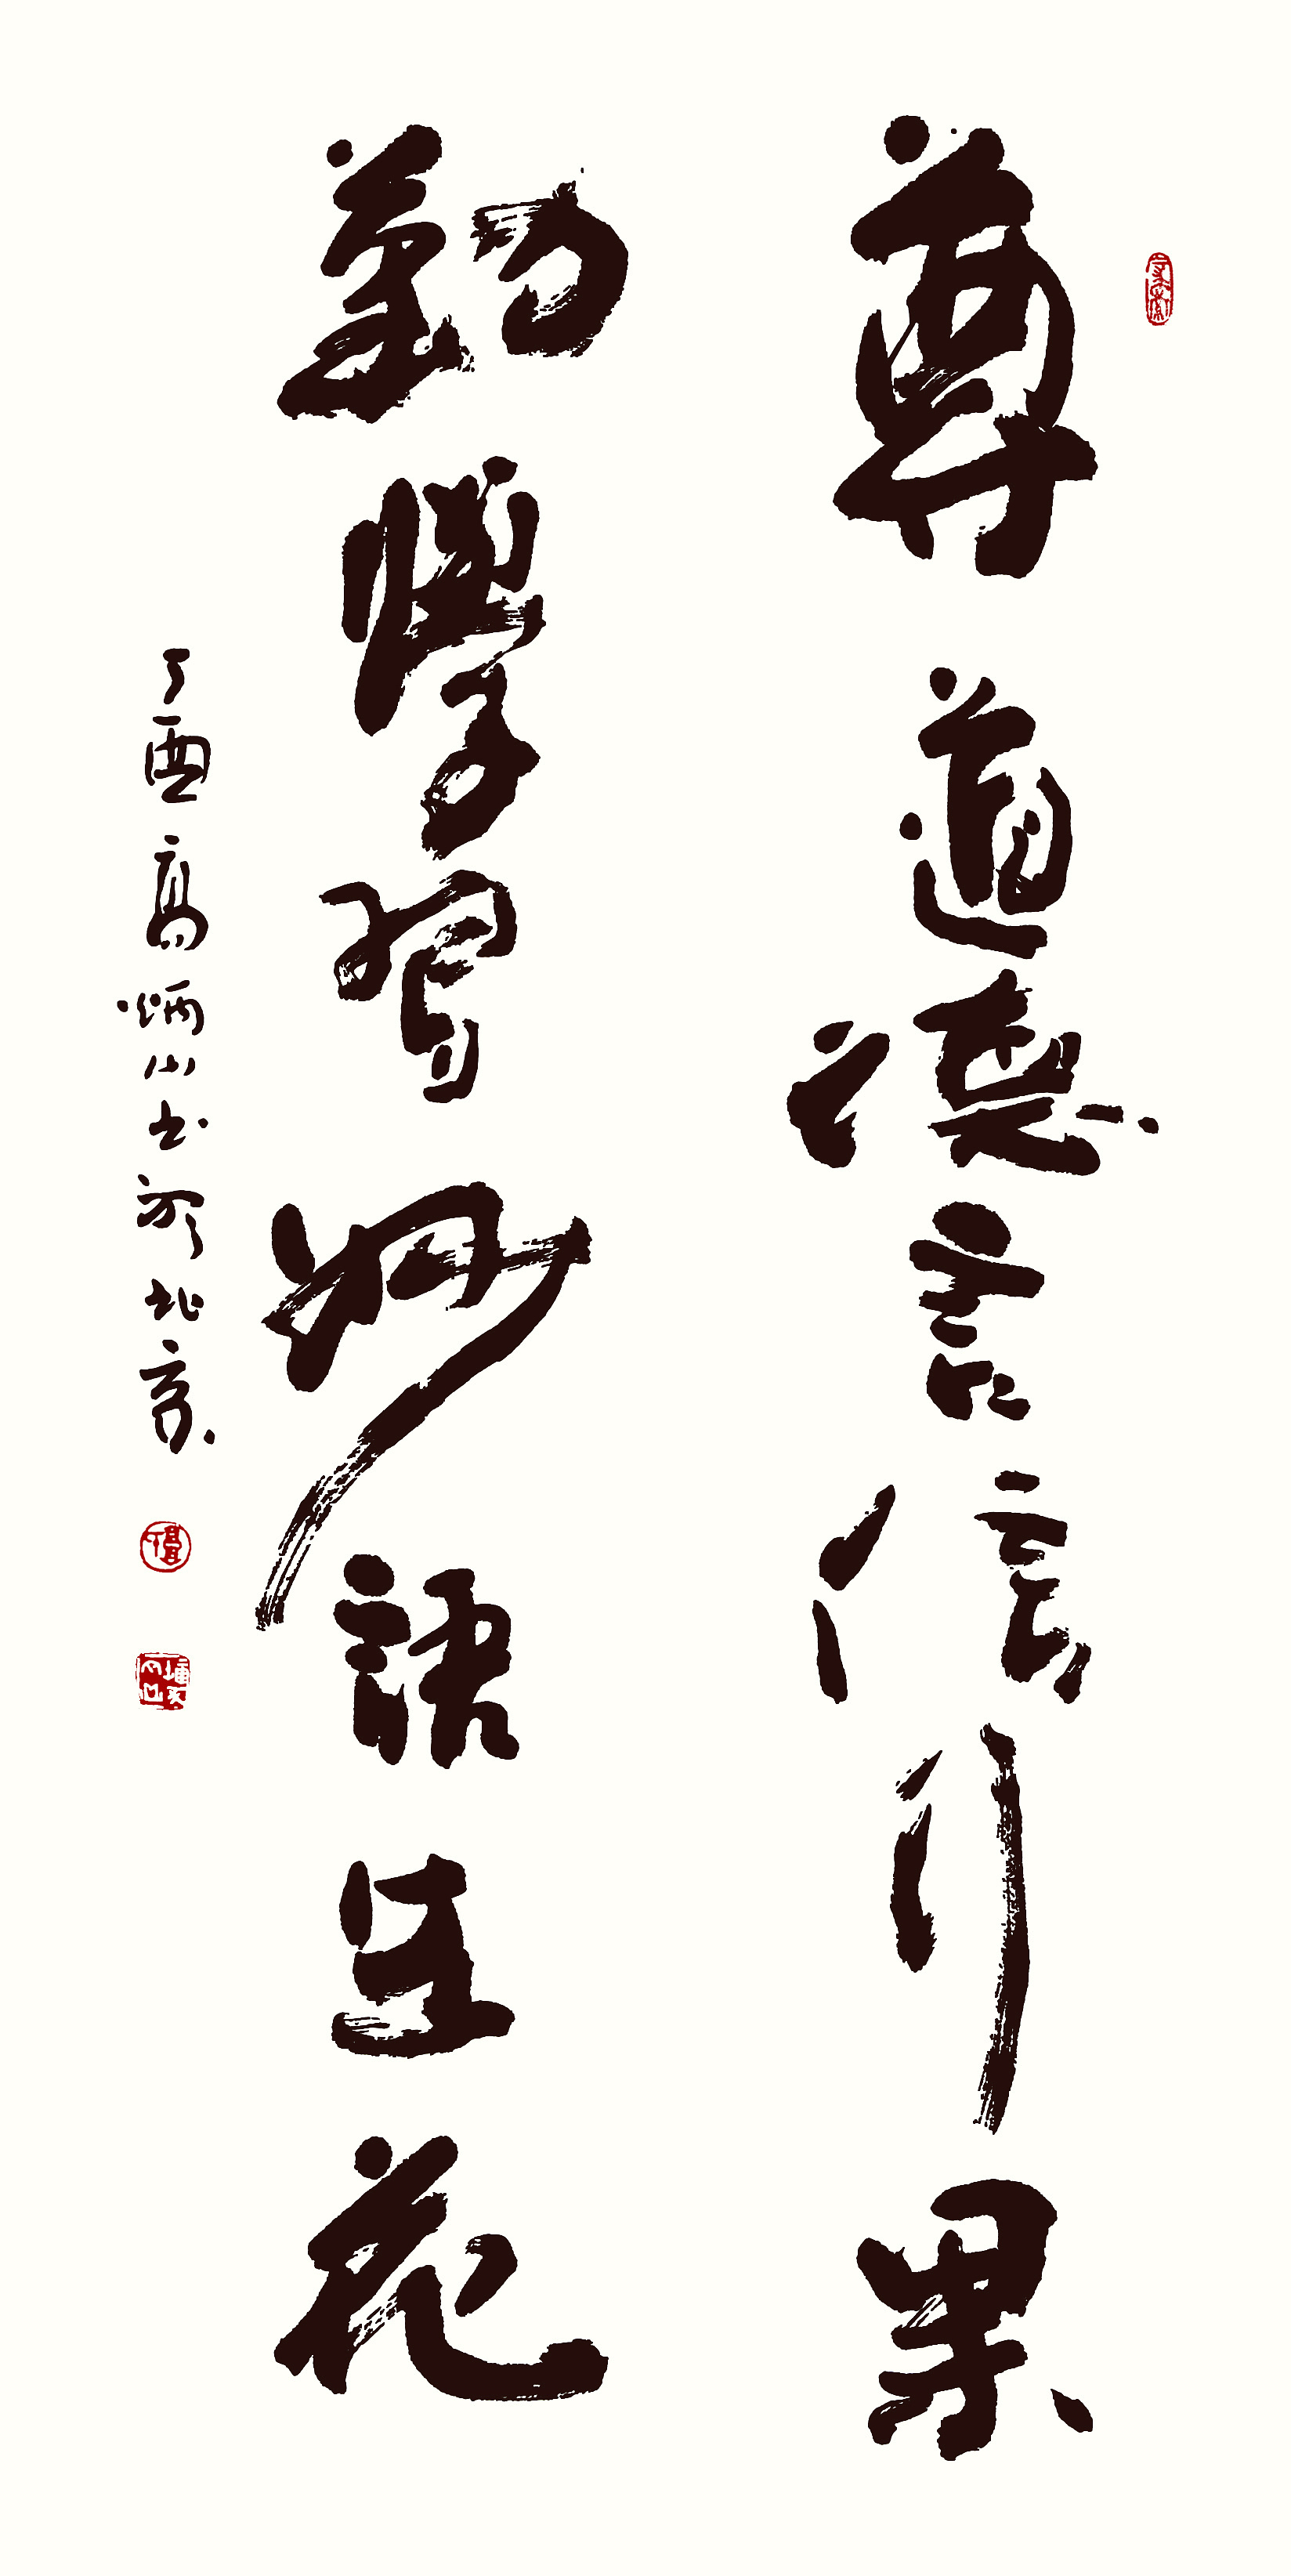 尊道德言信行果
勤學習妙語生花
丁酉高炳山书於北京